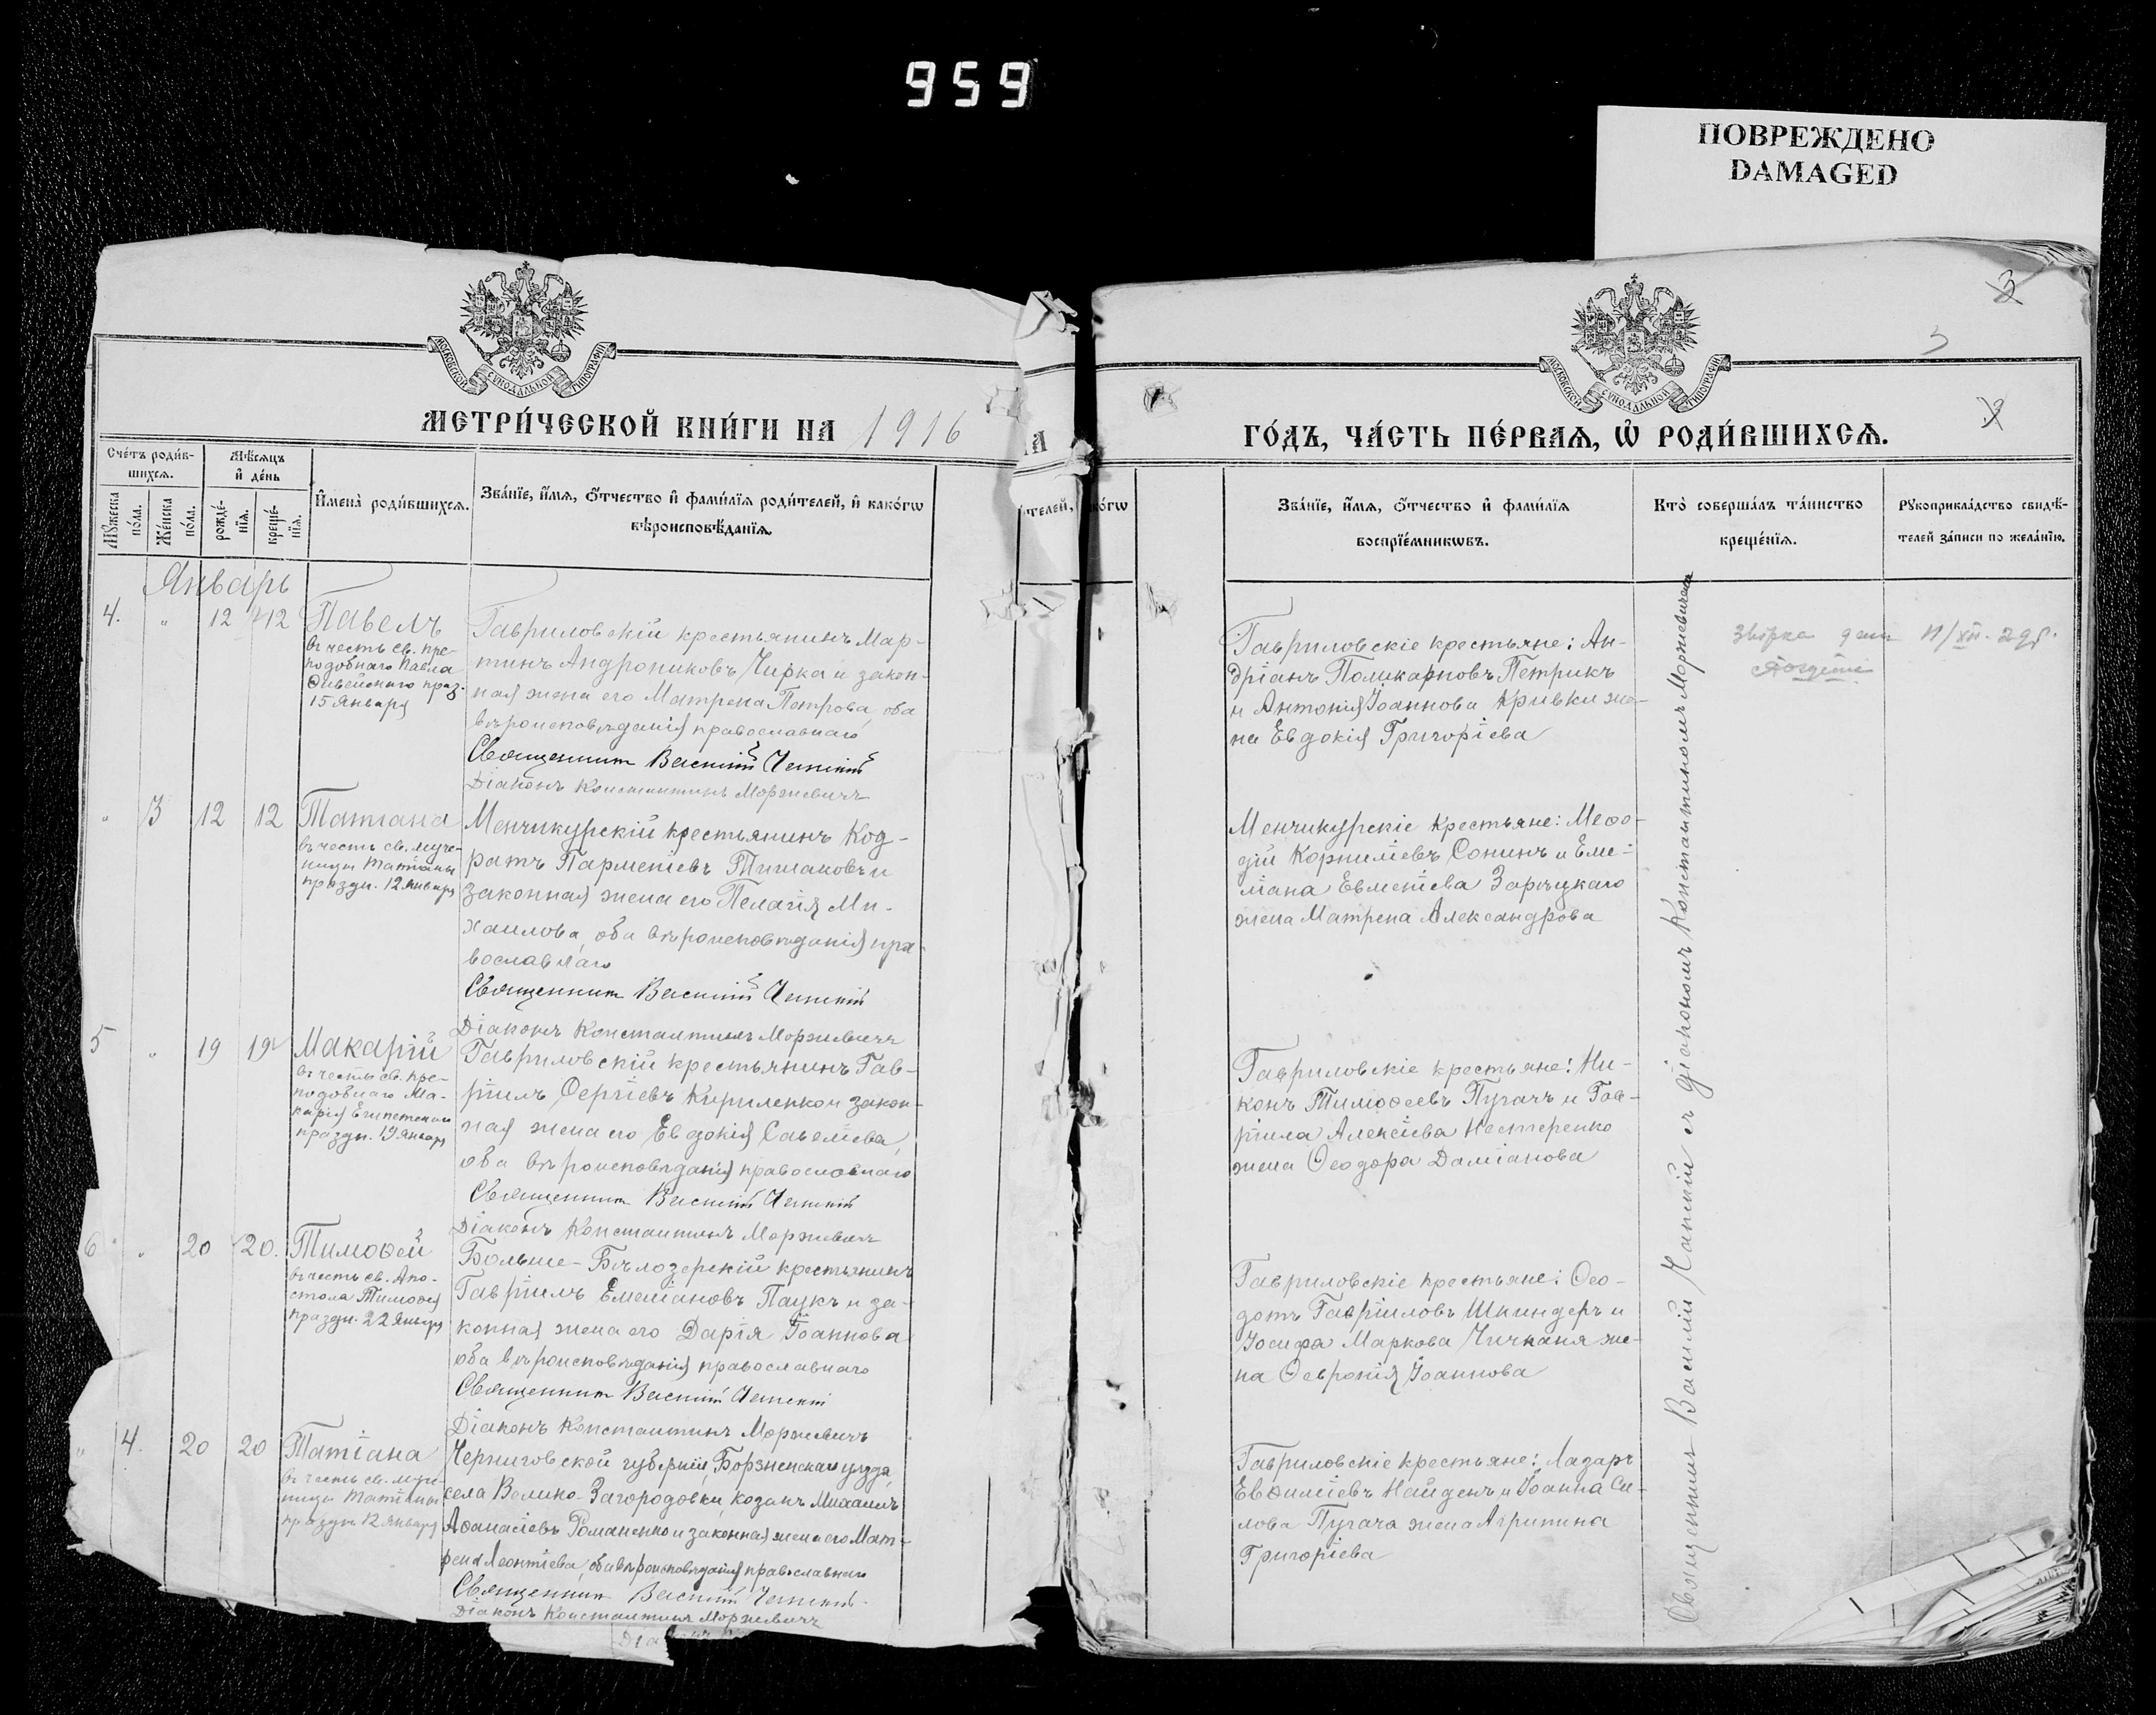 959
ПОВРЕЖДЕНО
DAMAGED
3
3
МОСКОВСКОЙ СУНОДАЛЬНОЙ ТИПОГРАФІИ
МОСКОВСКОЙ СУНОДАЛЬНОЙ ТИПОГРАФІИ
МЕТРИ́ЧЕСКОЙ КНИ́ГИ НА 1916
ГО́ДЪ, ЧА́СТЬ ПЕ́РВАѦ, Ѡ҆ РОДИ́ВШИХСѦ.
Сче́тъ роди́в-
шихсѧ.
Мꙋжеска
по́ла.
Же́нска
по́ла.
Мѣ́сѧцъ
и҆ де́нь
рожде́-
нїѧ.
креще́-
нїѧ.
И҆мена̀ роди́вшихсѧ.
Зва́нїе, и҆́мѧ, ѻ҆́тчество и҆ фами́лїѧ роди́телей, и҆ како́гѡ
вѣроисповѣ́данїѧ.
Зва́нїе, и҆́мѧ, ѻ҆́тчество и҆ фами́лїѧ
воспрїе́мникѡвъ.
Кто̀ соверша́лъ та́инство
креще́нїѧ.
Рꙋкоприкла́дство свидѣ́-
телей за́писи по жела́нїю.
Январь
4. " 12 12 Павелъ
въ честь св. пре-
подобнаго Павла
Ѳивейскаго праз.
15 Января
Гавриловскій крестьянинъ Мар-
тинъ Андрониковъ Чирка и закон-
ная жена его Матрена Петрова, оба
вѣроисповѣданія православнаго
Священникъ Василій
Діаконъ Константинъ Моржевичъ
Гавриловскіе крестьяне: Ан-
дріанъ Поликарповъ Петрикъ
и Антонія Іоаннова Кривки же-
на Евдокія Григоріева
" 3 12 12 Татіана
въ честь св. муче-
ницы Татіаны
праздн. 12 Января
Менчикурскій крестьянинъ Код-
ратъ Парменіевъ Тимаковъ и
законная жена его Пелагія Ми-
хаилова, оба вѣроисповѣданія пра-
вославнаго
Священникъ Василій
Діаконъ Константинъ Моржевичъ
Менчикурскіе крестьяне: Меѳо-
дій Корниліевъ Сонинъ и Еми-
ліана Евменіева Зарѣцкаго
жена Матрена Александрова
5 " 19 19 Макарій
въ честь св. пре-
подобнаго Ма-
карія Египетскаго
праздн. 19 Января
Гавриловскій крестьянинъ Гав-
ріилъ Сергіевъ Кириленко и закон-
ная жена его Евдокія Савеліева,
оба вѣроисповѣданія православнаго
Священникъ Василій
Діаконъ Константинъ Моржевичъ
Гавриловскіе крестьяне: Ни-
конъ Тимоѳеевъ Пугачъ и Гав-
ріила Алексіева Нестеренко
жена Ѳеодора Даміанова
6 " 20 20. Тимоѳей
въ честь св. Апо-
стола Тимоѳея
праздн. 22 Января
Больше-Бѣлозерскій крестьянинъ
Гавріилъ Емеліановъ Паукъ и за-
конная жена его Дарія Іоаннова
оба вѣроисповѣданія православнаго
Священникъ Василій
Діаконъ Константинъ Моржевичъ
Гавриловскіе крестьяне: Ѳео-
дотъ Гавріиловъ Шкиндеръ и
Іосифа Маркова Чичканя же-
на Ѳевронія Іоаннова
" 4. 20 20 Татіана
въ честь св. муче-
ницы Татіаны
праздн 12 Января
Черниговской губерніи, Борзненскаго уѣзда,
села Велико-Загородовки, козакъ Михаилъ
Аѳанасіевъ Романенко и законная жена его Мат-
рена Леонтіева, оба вѣроисповѣданія православнаго
Священникъ Василій
Діаконъ Константинъ Моржевичъ
Гавриловскіе крестьяне: Лазарь
Евѳиміевъ Найденъ и Іоанна Си-
лова Пугача жена Агрипина
Григоріева
Священникъ Василій съ діакономъ Константиномъ Моржевичемъ